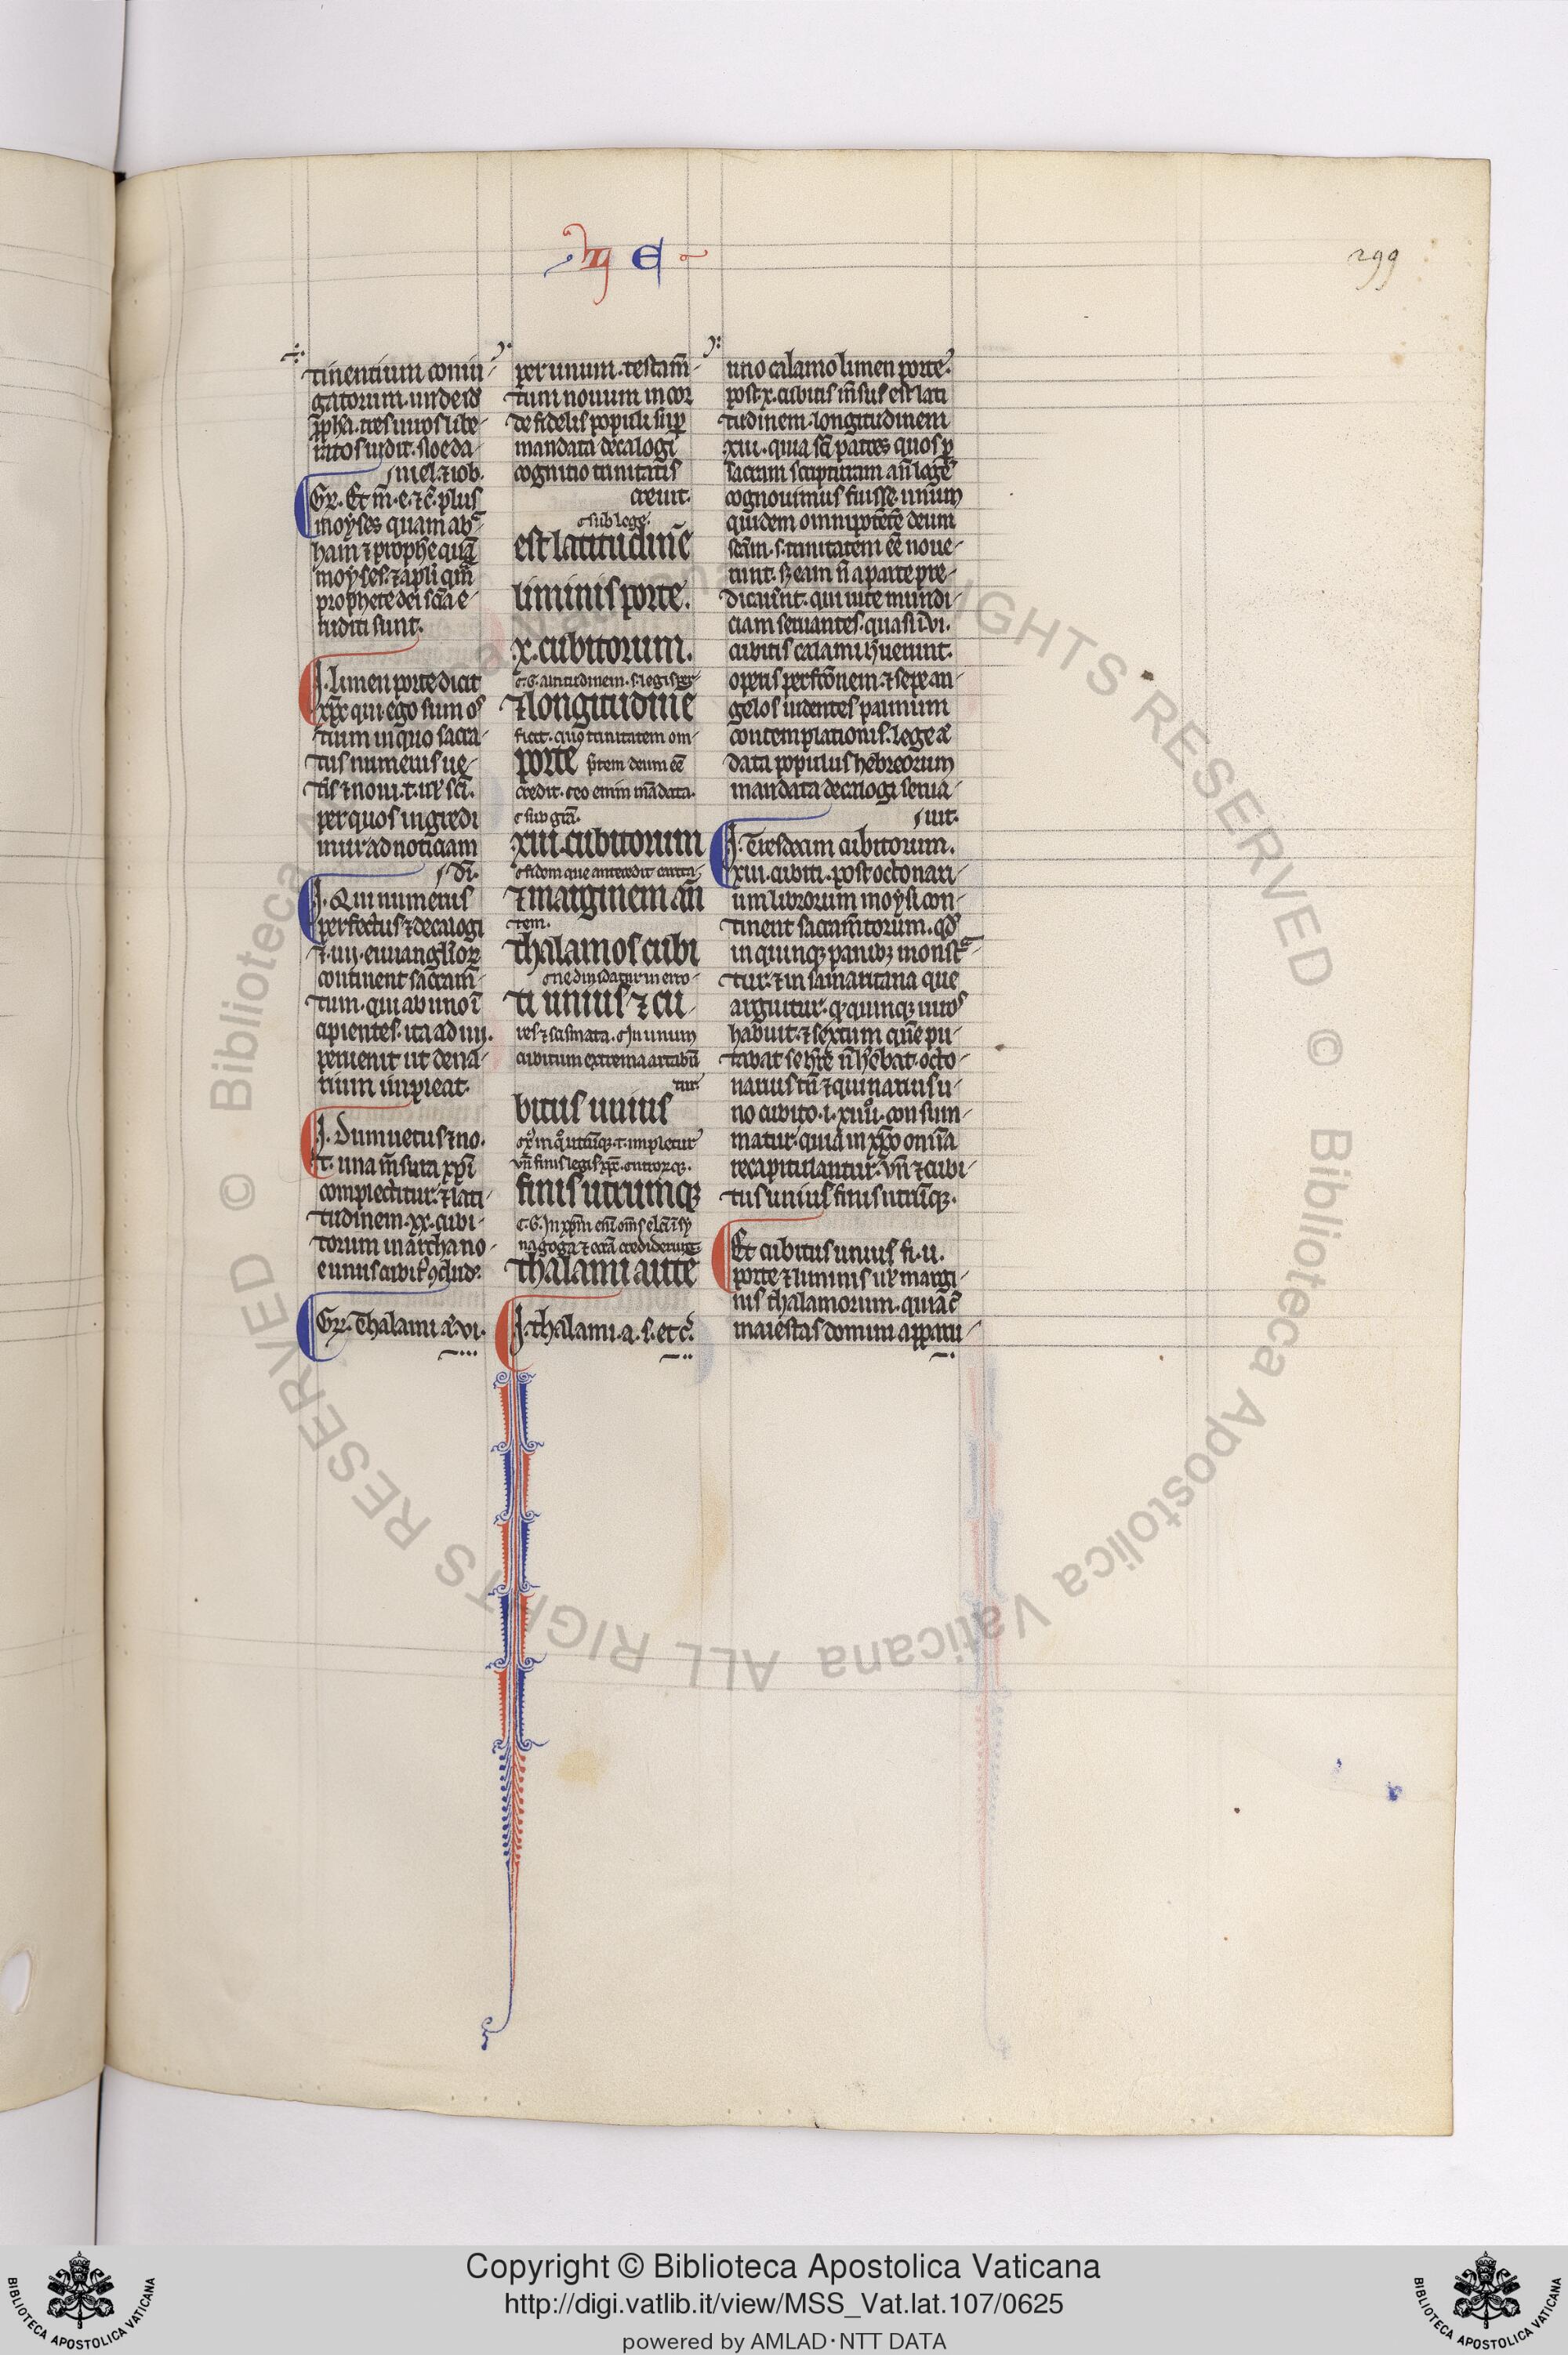 ZE
299
tinentium coniu
gatorum. unde is
ppha. tres uiros libe
ratos uidit. Noe da
niel. ⁊ iob.
Gr. Et m̄. e. ⁊ c̄. plus
moyses quam ab
ham ⁊ prophe quā
moyses. ⁊ apli qm̄
prophete dei sc̄ia e
ruditi sunt.
J. limen porte dicit
xp̄c qui. ego sum os
tium in quo sacra
tus numerus ue
t̄is ⁊ noui. t. ur̄ sc̄i.
per quos ingredi
mur ad noticiam
dī.
J. Qui numerus
perfectus ⁊ decalogi
⁊ .iiij. euuanglior̄
continent sacram̄
tum. qui ab uno ī
cipientes. ita ad .iiij.
peruenit ut dena
rium impleat.
J. Dum uetus ⁊ no.
t. una m̄sura xp̄i
complectitur. ⁊ lati
tudinem .xx. cubi
torum in archa no
e unus cubit᷒ ꝯclud᷒.
Gr. Thalami a. vi.
per unum. testam̄
tum nouum in cor
de fidelis populi sup̄
mandata decalogi
cognitio trinitatis
creuit.
sub lege.
est latitudinē
liminis porte.
.x. cubitorum.
G. altitudinem. s. legis per
⁊ longitudinē
ficit. quo trinitatem om
porte
p̄tem deum eē
credit. ceo enim mādata.
sub gr̄a.
xiii. cubitorum
fidem que antecedit carita
⁊ marginem an̄
tem.
thalamos cubi
ne diuidatur in erro
ti unius ⁊ cu
res ⁊ scismata. In unum
cubitum extrema artabūn
tur.
bitus unius
xp̄m q̄ utrūq. t. impletur
vn̄ finis legis xp̄c. utrorq.
finis utrumq
G. In xp̄m enī om̄s electi sy
nagoga ⁊ ecc̄a crediderunt
thalami autē
J. thalami. a. s. et c̄.
uno calamo limen porte.
post .x. cubitis m̄sus est lati
tudinem. longitudinem
.xiii. quia sc̄i patres quos p̄
sacram scripturam an̄ legē
cognouimus fuisse. unum
quidem omnipotētē deum
sc̄am. s. trinitatem eē noue
runt. sꝫ eam n̄ aparte pre
dicarūt. qui uite mundi
ciam seruantes. quasi ī vi.
cubitis calami h̄uerunt.
operis perfcōnem. ⁊ sepe an
gelos uidentes parumm
contemplationis. lege a
data populus hebreorum
mandata decalogi serua
uit.
J. Tresdecim cubitorum.
Xiii. cubiti. post octonari
um librorum moysi con
tinent sacram̄torum. qd̄
in quinqꝫ panibꝫ monst
tur. ⁊ in samaritana que
arguitur. q̄ quinqꝫ uiros
habuit. ⁊ sextum quē pu
tabat se h̄re n̄ h̄ebat. octo
narius tn̄ ⁊ quinarius u
no cubito .i. xiiii. consum
matur. quia in xp̄o omīa
recapitulantur. vn̄ ⁊ cubi
tus unius finis utrūqꝫ.
Et cubitus unius fi. u.
porte ⁊ liminis ur̄ margi
nis thalamorum. quia c̄
maiestas domini apparu
Copyright © Biblioteca Apostolica Vaticana
http://digi.vatlib.it/view/MSS_Vat.lat.107/0625
powered by AMLAD·NTT DATA
BIBLIOTECA APOSTOLICA VATICANA
BIBLIOTECA APOSTOLICA VATICANA
© Biblioteca Apostolica Vaticana ALL RIGHTS RESERVED © Biblioteca Apostolica Vaticana ALL RIGHTS RESERVED